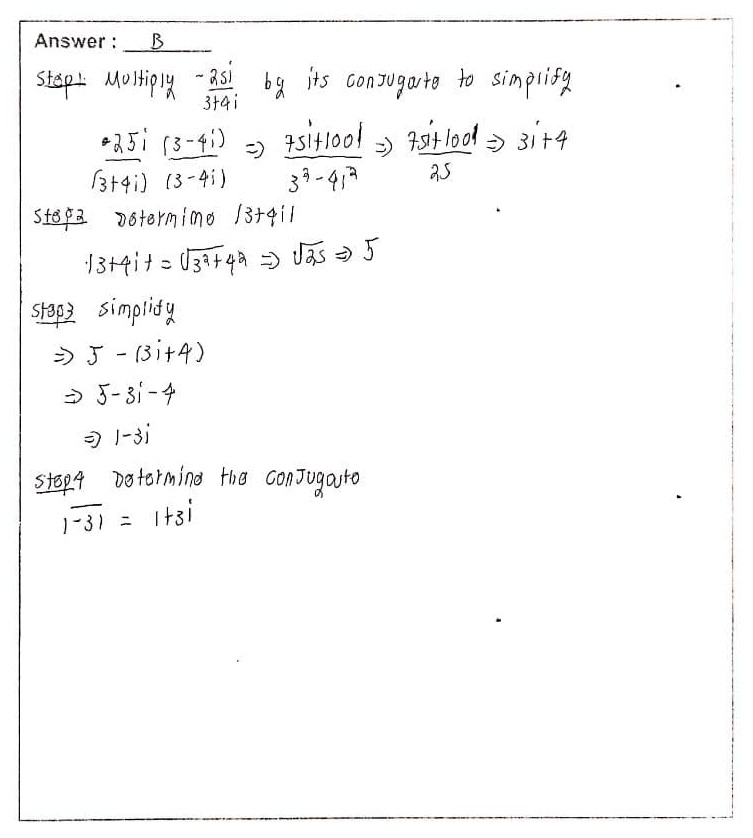 Answer : B
Step1: Multiply -25i/3+4i by its conjugate to simplify
-25i (3-4i)/(3+4i) (3-4i) ⇒ 75i+100i/3²-4i² ⇒ 75i+100i/25 ⇒ 3i+4
Step2 Determine |3+4i|
|3+4i| = √3²+4² ⇒ √25 ⇒ 5
Step3 simplify
⇒ 5 - (3i+4)
⇒ 5-3i-4
⇒ 1-3i
Step4 Determine the conjugate
1̅-̅3̅i̅ = 1+3i